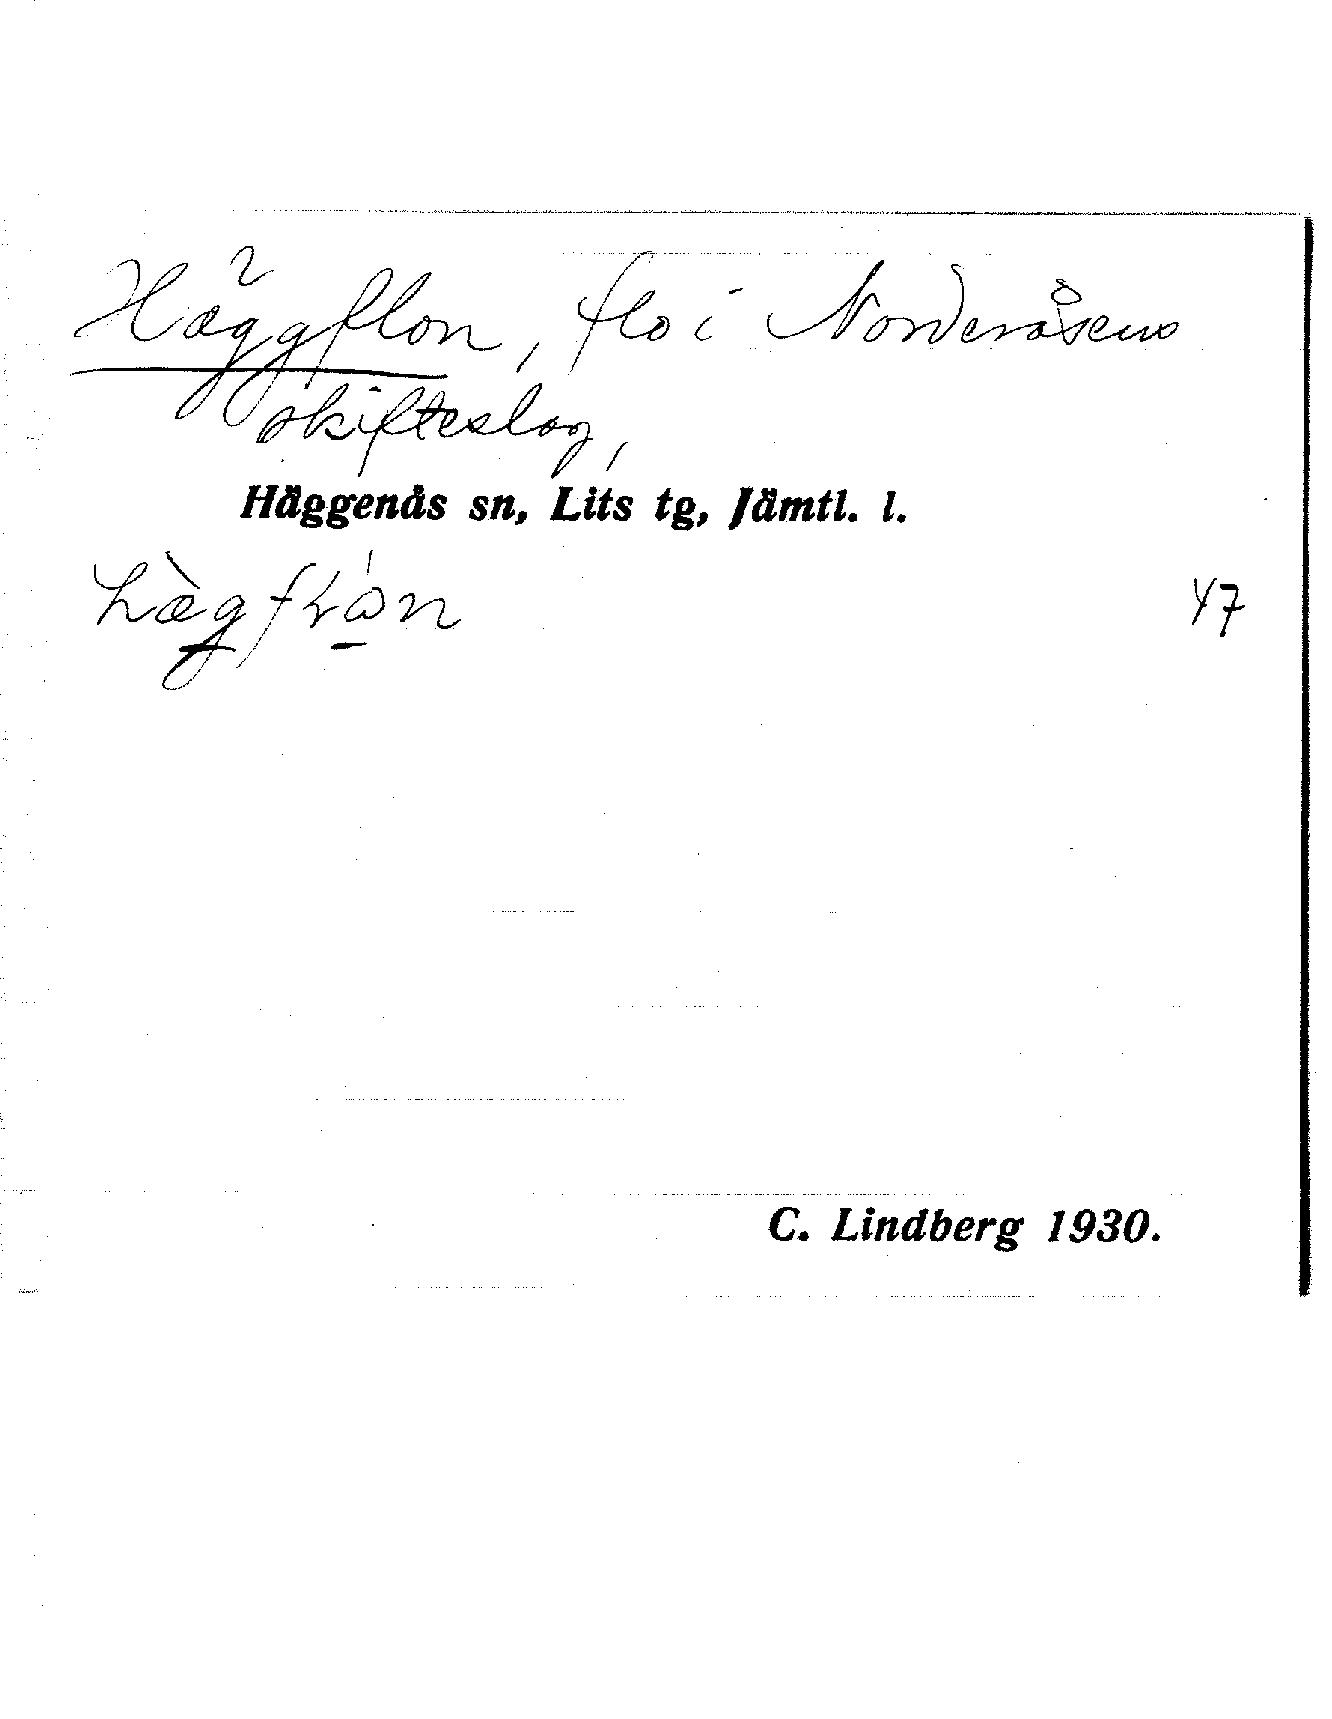 Häggflon, flo i Norderåsens
skifteslag,
Häggenås sn, Lits tg, Jämtl. l.
47
C. Lindberg 1930.